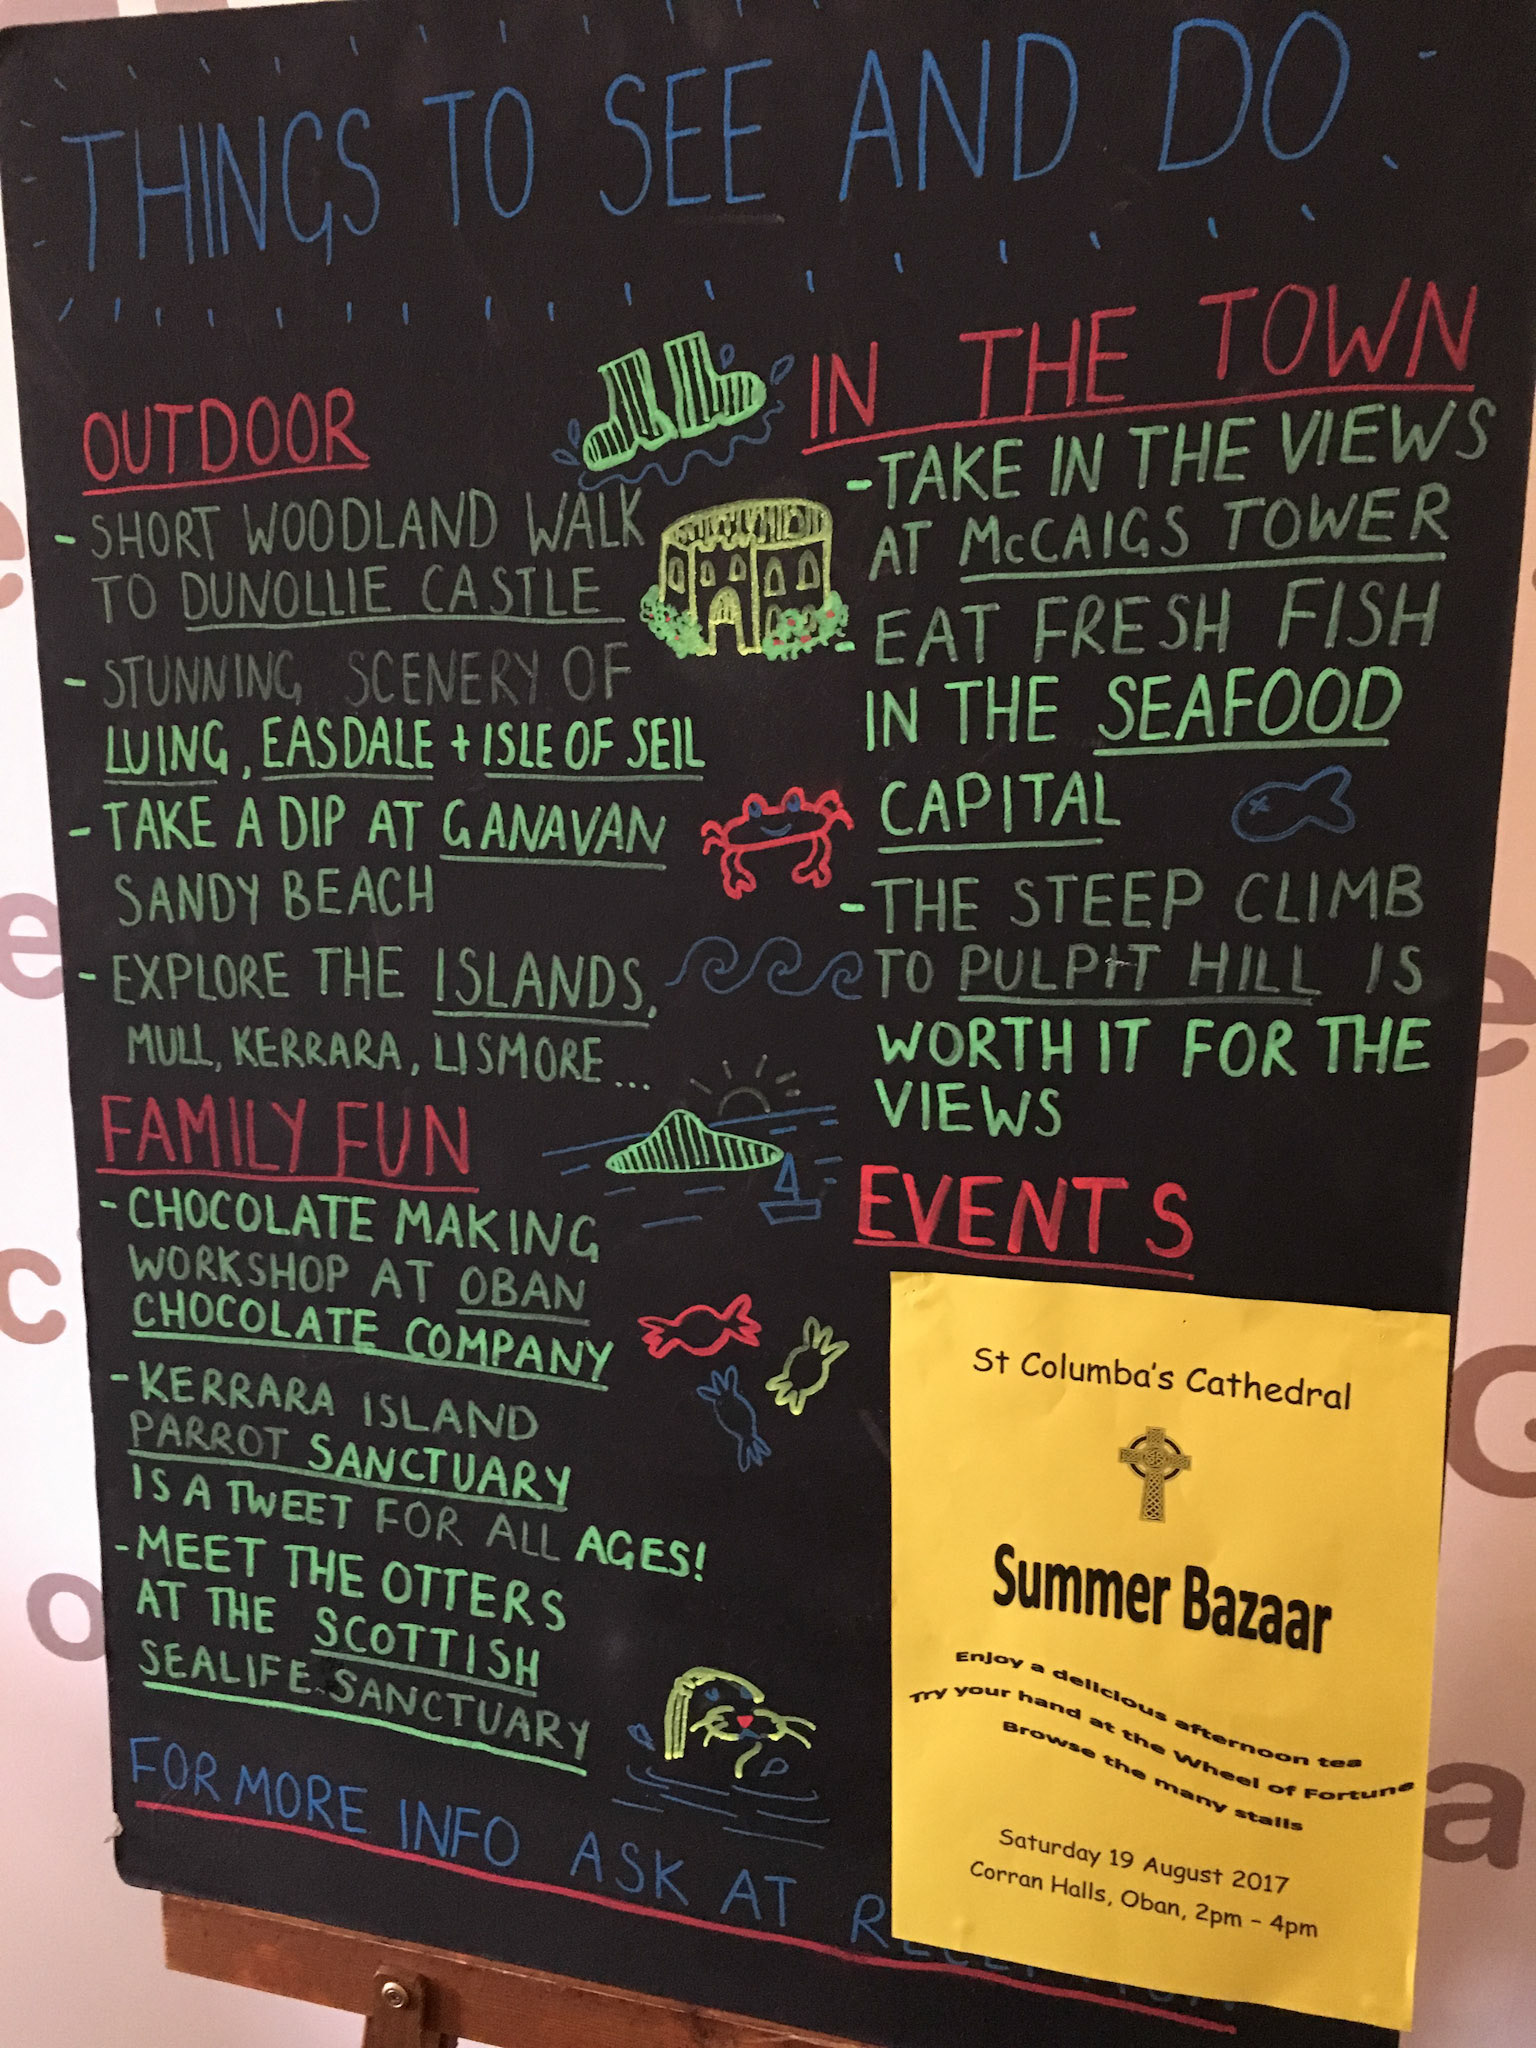 THINGS TO SEE AND DO
OUTDOOR
- SHORT WOODLAND WALK
TO DUNOLLIE CASTLE
- STUNNING SCENERY OF
LUING, EASDALE + ISLE OF SEIL
- TAKE A DIP AT GANAVAN
SANDY BEACH
- EXPLORE THE ISLANDS,
MULL, KERRARA, LISMORE...
FAMILY FUN
- CHOCOLATE MAKING
WORKSHOP AT OBAN
CHOCOLATE COMPANY
- KERRARA ISLAND
PARROT SANCTUARY
IS A TWEET FOR ALL AGES!
- MEET THE OTTERS
AT THE SCOTTISH
SEALIFE SANCTUARY
IN THE TOWN
- TAKE IN THE VIEWS
AT McCAIGS TOWER
- EAT FRESH FISH
IN THE SEAFOOD
CAPITAL
- THE STEEP CLIMB
TO PULPIT HILL IS
WORTH IT FOR THE
VIEWS
EVENTS
St Columba's Cathedral
Summer Bazaar
Enjoy a delicious afternoon tea
Try your hand at the Wheel of Fortune
Browse the many stalls
Saturday 19 August 2017
Corran Halls, Oban, 2pm – 4pm
FOR MORE INFO ASK AT